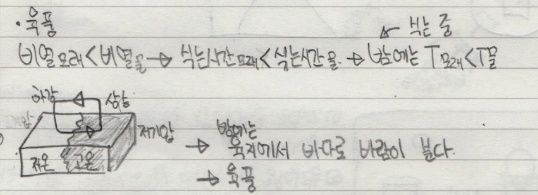 · 육풍
식는 중
비열모래 < 비열물 → 식는시간모래 < 식는시간물. → 밤에는 T모래 < T물
하강 상승
저기압
저온 고온
→ 밤에는 육지에서 바다로 바람이 분다.
→ 육풍